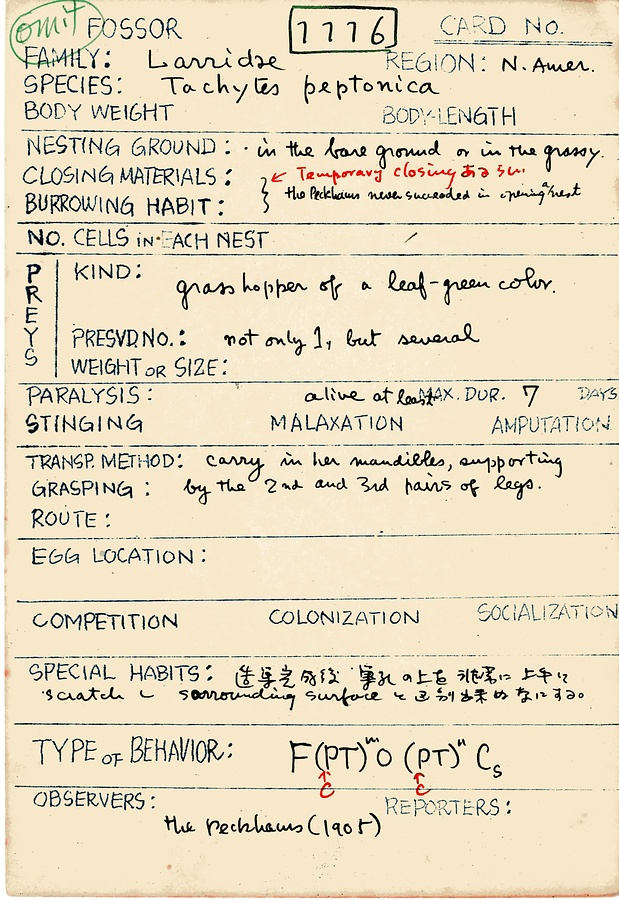 omit FOSSOR 1776 CARD NO.
FAMILY: Larridae REGION: N. Amer.
SPECIES: Tachytes peptonica
BODY WEIGHT BODY-LENGTH
NESTING GROUND: · in the bare ground or in the grassy.
CLOSING MATERIALS: } ← Temporary closing ある
BURROWING HABIT: the Peckhams never succeeded in opening a nest
NO. CELLS in EACH NEST
PREYS
KIND: grasshopper of a leaf-green color.
PRESVD NO.: not only 1, but several
WEIGHT OR SIZE:
PARALYSIS: alive at least MAX. DUR. 7 DAYS
STINGING MALAXATION AMPUTATION
TRANSP. METHOD: carry in her mandibles, supporting
GRASPING: by the 2nd and 3rd pairs of legs.
ROUTE:
EGG LOCATION:
COMPETITION COLONIZATION SOCIALIZATION
SPECIAL HABITS: 造巣完成後 巣孔の上を非常に上手に
scratch し sorrounding surface と区別出来ぬなにする。
TYPE OF BEHAVIOR: F(PT)ᵐO (PT)ⁿ Cs
↑ ↑
C C
OBSERVERS: REPORTERS:
the Peckhams (1905)